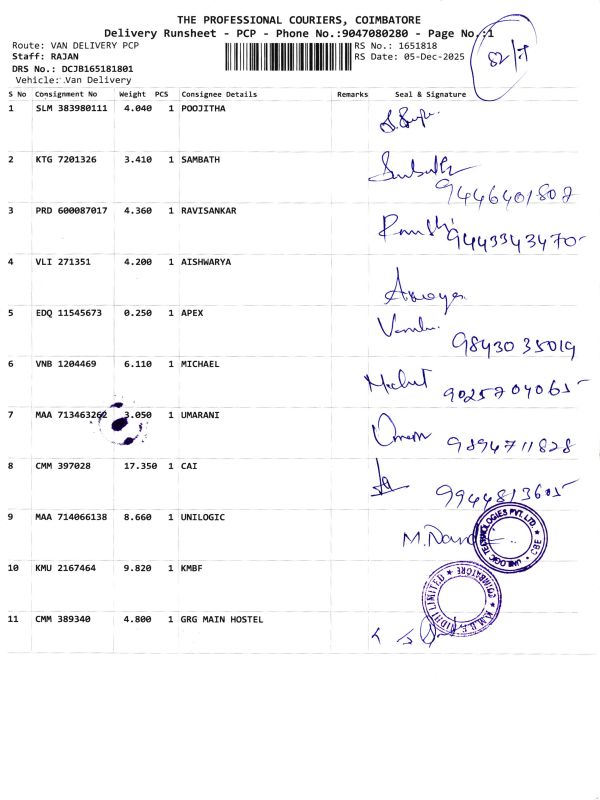 THE PROFESSIONAL COURIERS, COIMBATORE
Delivery Runsheet - PCP - Phone No.:9047080280 - Page No.:1
Route: VAN DELIVERY PCP
Staff: RAJAN
DRS No.: DCJB165181801
Vehicle: Van Delivery
RS No.: 1651818
RS Date: 05-Dec-2025
S No Consignment No Weight PCS Consignee Details Remarks Seal & Signature
1 SLM 383980111 4.040 1 POOJITHA
2 KTG 7201326 3.410 1 SAMBATH Sambath
9446401802
3 PRD 600087017 4.360 1 RAVISANKAR
9443343470
4 VLI 271351 4.200 1 AISHWARYA
5 EDQ 11545673 0.250 1 APEX
9843035019
6 VNB 1204469 6.110 1 MICHAEL
9025704065
7 MAA 713463262 3.050 1 UMARANI
9894711828
8 CMM 397028 17.350 1 CAI
9944813605
9 MAA 714066138 8.660 1 UNILOGIC
UNILOGIC TECHNOLOGIES PVT. LTD. * CBE *
10 KMU 2167464 9.820 1 KMBF
K.M.B.F. NIDHI LIMITED * COIMBATORE *
11 CMM 389340 4.800 1 GRG MAIN HOSTEL